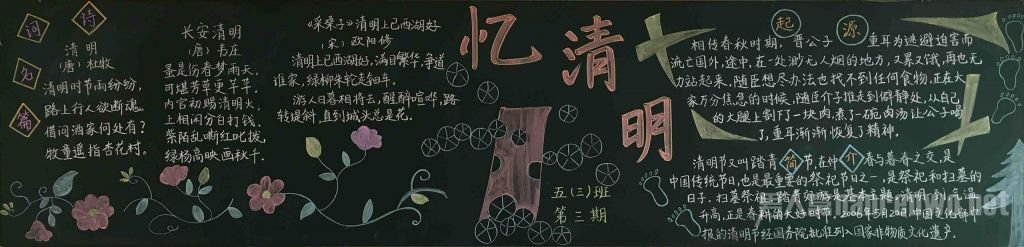 诗词名篇
清明
(唐)杜牧
清明时节雨纷纷,
路上行人欲断魂。
借问酒家何处有?
牧童遥指杏花村。
长安清明
(唐)韦庄
蚤是伤春梦雨天,
可堪芳草更芊芊。
内官初赐清明火,
上相闲分白打钱。
紫陌乱嘶红叱拨,
绿杨高映画秋千。
《采桑子》清明上巳西湖好
(宋)欧阳修
清明上巳西湖好,满目繁华,争道
谁家,绿柳朱轮走钿车。
游人日暮相将去,醒醉喧哗,路
转堤斜,直到城头总是花。
忆清明
五(三)班
第三期
起源
相传春秋时期,晋公子重耳为逃避迫害而
流亡国外,途中,在一处渺无人烟的地方,又累又饿,再也无
力站起来,随臣想尽办法也找不到任何食物,正在大
家万分焦急的时候,随臣介子推走到僻静处,从自己
的大腿上割下了一块肉,煮了一碗肉汤让公子喝
了,重耳渐渐恢复了精神。
简介
清明节又叫踏青节,在仲春与暮春之交,是
中国传统节日,也是最重要的祭祀节日之一,是祭祀和扫墓的
日子。扫墓祭祖、踏青郊游是基本主题,清明一到,气温
升高,正是春耕的大好时节,2006年5月20日,中国文化部申
报的清明节经国务院批准列入国家非物质文化遗产。